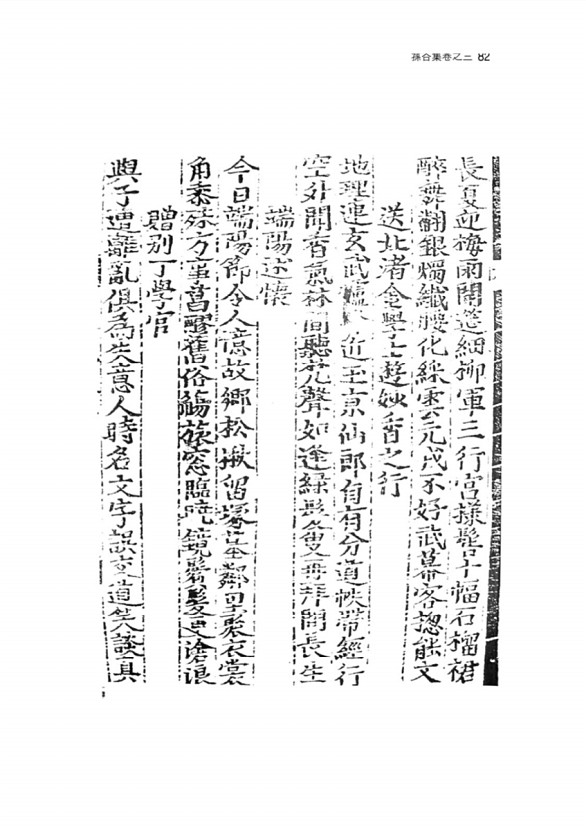 蓀谷集卷之三 82
長夏迎梅雨開筵細柳軍三行宮樣髻十幅石榴裙
醉舞翻銀燭纖腰化綵雲元戎不好武幕客摠能文
送北渚金學士遊妙香之行
地理連玄武近王京仙郎自有分道帙帶經行
空外聞香氣林間聽梵聲如逢綠髮叟再拜問長生
端陽述懷
今日端陽節令人憶故鄉松楸留塚墓鄰里衣裳
角黍殊方事菖醪舊俗觴旅窓臨曉鏡鬢髮更滄浪
贈別丁學官
與子遭離亂俱爲失意人時名文字誤交道笑談眞